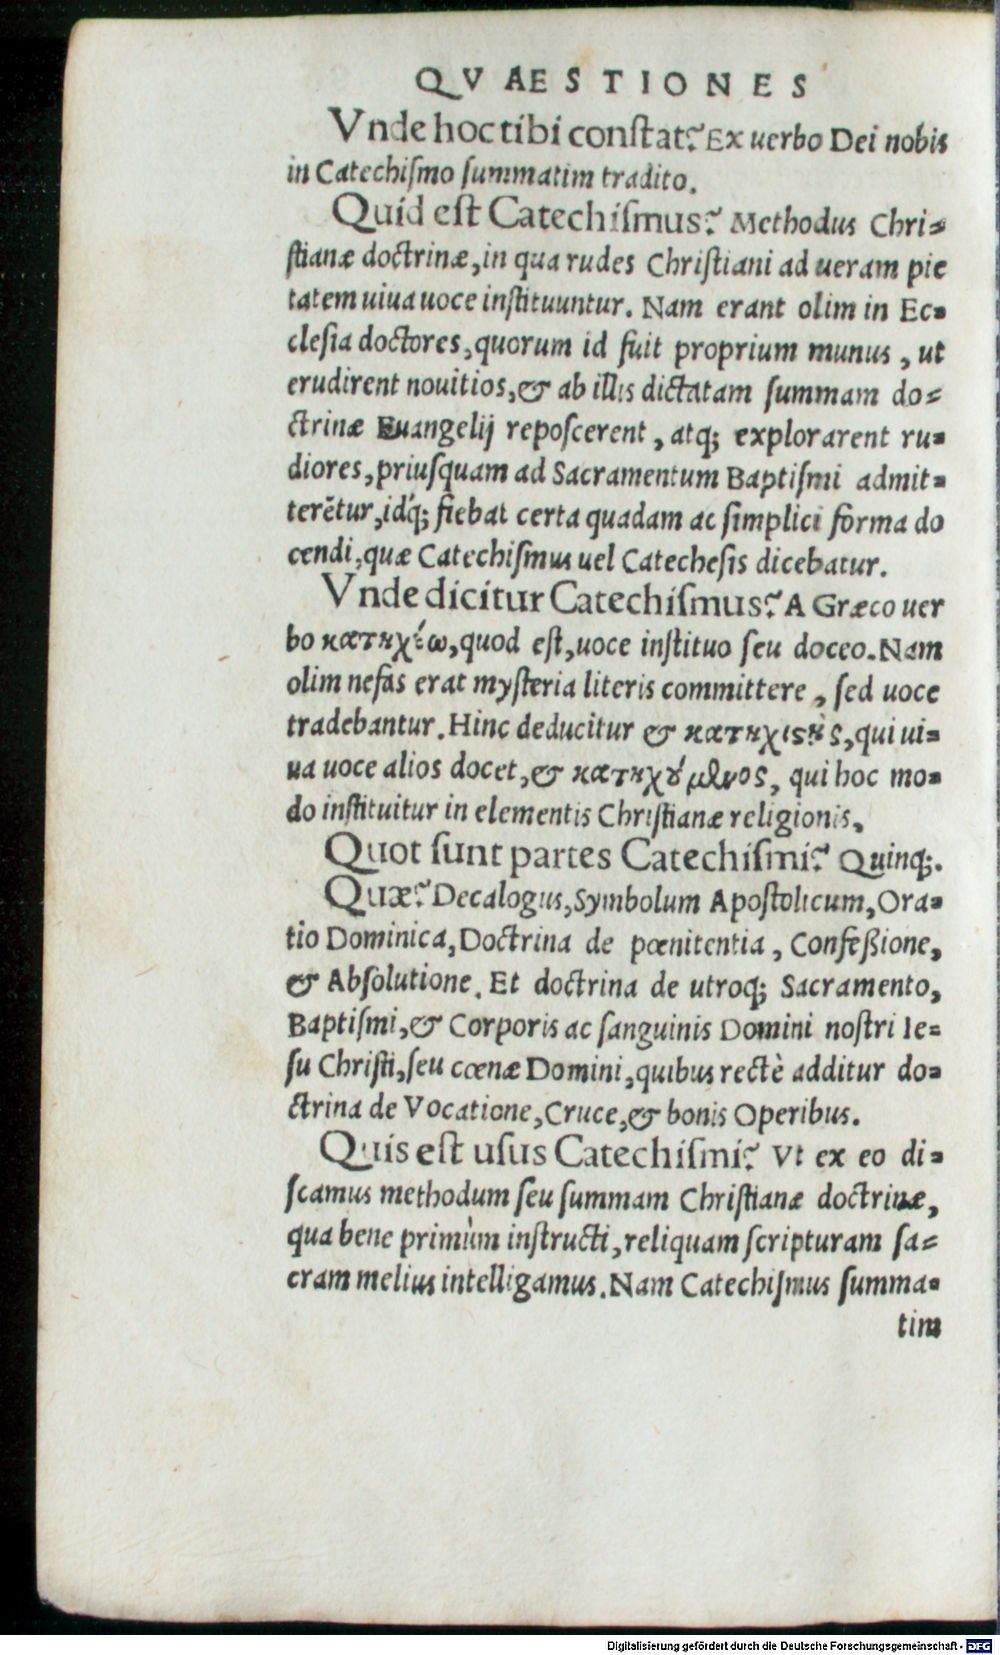 QVAESTIONES
Vnde hoc tibi conſtat? Ex uerbo Dei nobis
in Catechiſmo ſummatim tradito.
Quid eſt Catechiſmus? Methodus Chri-
ſtianæ doctrinæ, in qua rudes Chriſtiani ad ueram pie
tatem uiua uoce inſtituuntur. Nam erant olim in Ec-
cleſia doctores, quorum id fuit proprium munus, ut
erudirent nouitios, & ab illis dictatam ſummam do-
ctrinæ Euangelij repoſcerent, atq; explorarent ru-
diores, priuſquam ad Sacramentum Baptiſmi admit-
terētur, idq́; fiebat certa quadam ac ſimplici forma do
cendi, quæ Catechiſmus uel Catecheſis dicebatur.
Vnde dicitur Catechiſmus? A Græco uer
bo κατηχέω, quod eſt, uoce inſtituo ſeu doceo. Nam
olim nefas erat myſteria literis committere, ſed uoce
tradebantur. Hinc deducitur & κατηχιϛὴς, qui ui-
ua uoce alios docet, & κατηχούμενος, qui hoc mo-
do inſtituitur in elementis Chriſtianæ religionis.
Quot ſunt partes Catechiſmi? Quinq;.
Quæ? Decalogus, Symbolum Apoſtolicum, Ora-
tio Dominica, Doctrina de pœnitentia, Confeßione,
& Abſolutione. Et doctrina de utroq; Sacramento,
Baptiſmi, & Corporis ac ſanguinis Domini noſtri Ie-
ſu Chriſti, ſeu cœnæ Domini, quibus rectè additur do-
ctrina de Vocatione, Cruce, & bonis Operibus.
Quis eſt uſus Catechiſmi? Vt ex eo di-
ſcamus methodum ſeu ſummam Chriſtianæ doctrinæ,
qua bene primùm inſtructi, reliquam ſcripturam ſa-
cram melius intelligamus. Nam Catechiſmus ſumma-
tim
Digitalisierung gefördert durch die Deutsche Forschungsgemeinschaft - DFG